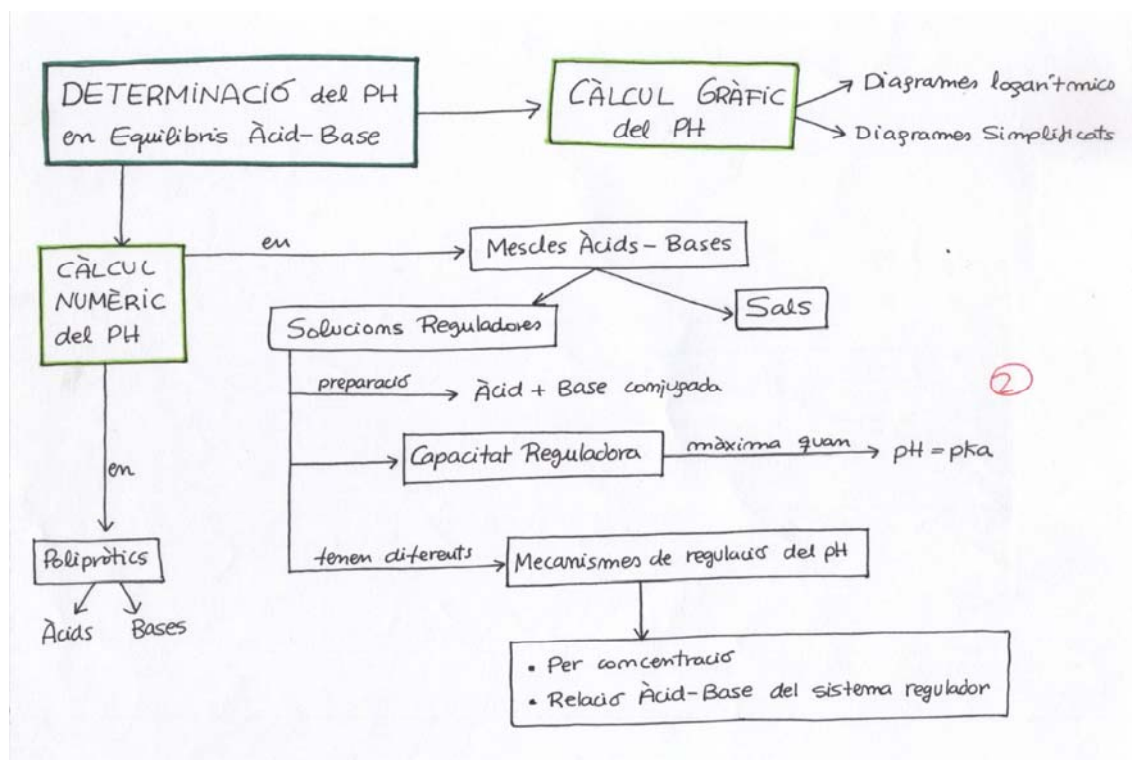 DETERMINACIÓ del PH
en Equilibris Àcid-Base
CÀLCUL GRÀFIC
del PH
Diagrames logarítmico
Diagrames Simplificats
CÀLCUL
NUMÈRIC
del PH
en
Mescles Àcids-Bases
Solucions Reguladores
Sals
preparació
Àcid + Base conjugada
2
Capacitat Reguladora
màxima quan
pH = pka
en
tenen diferents
Mecanismes de regulació del pH
Polipròtics
Àcids Bases
• Per concentració
• Relació Àcid-Base del sistema regulador